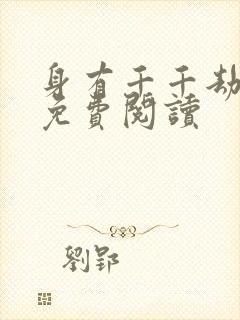 身有千千劫
免費閱讀
劉郢